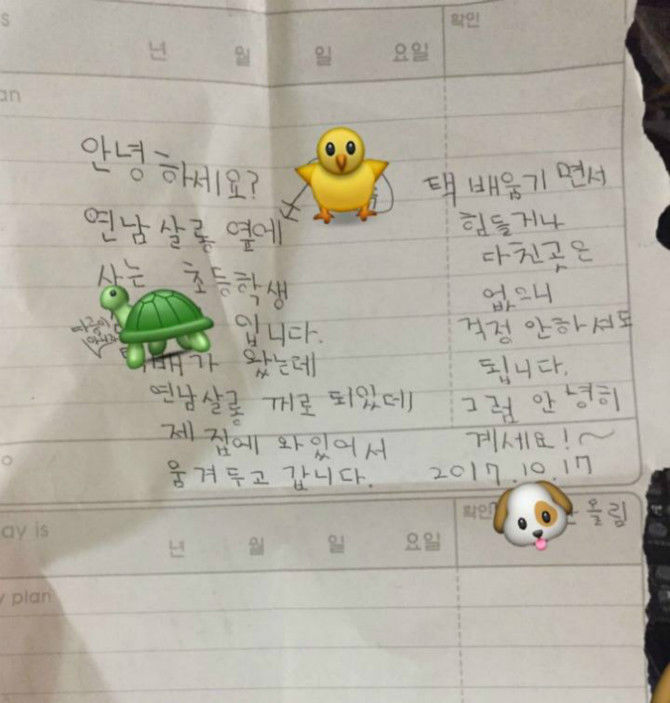 s
확인
년 월 일 요일
an
안녕하세요?
연남살롱 옆에
사는 초등학생
입니다.
택배가 왔는데
연남살롱 꺼로 되있는데
제 집에 와있어서
움겨두고 갑니다.
택배움기면서
힘들거나
다친곳은
없으니
걱정 안하셔도
됩니다.
그럼 안녕히
계세요!~
2017.10.17
올림
o
ay is
년 월 일 요일
확인
y plan